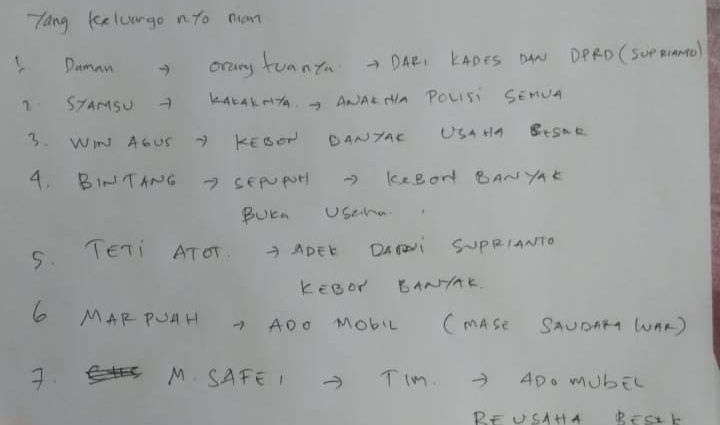 Yang keluargo nyo nian
1. Daman → orang tuanya → DARI KADES DAN DPRD (SUPRIANTO)
2. SYAMSU → KAKAKNYA → ANAKNYA POLISI SEMUA
3. WIN AGUS → KEBON BANYAK USAHA BESAR
4. BINTANG → SEPUPUH → KEBON BANYAK
BUKA Usaha.
5. TETI ATOT. → ADEK DARI SUPRIANTO
KEBON BANYAK.
6 MARPUAH → ADO MOBIL (MASE SAUDARA WAR)
7. M. SAFEI → TIM. → ADO MUBEL
BEUSAHA BESAR